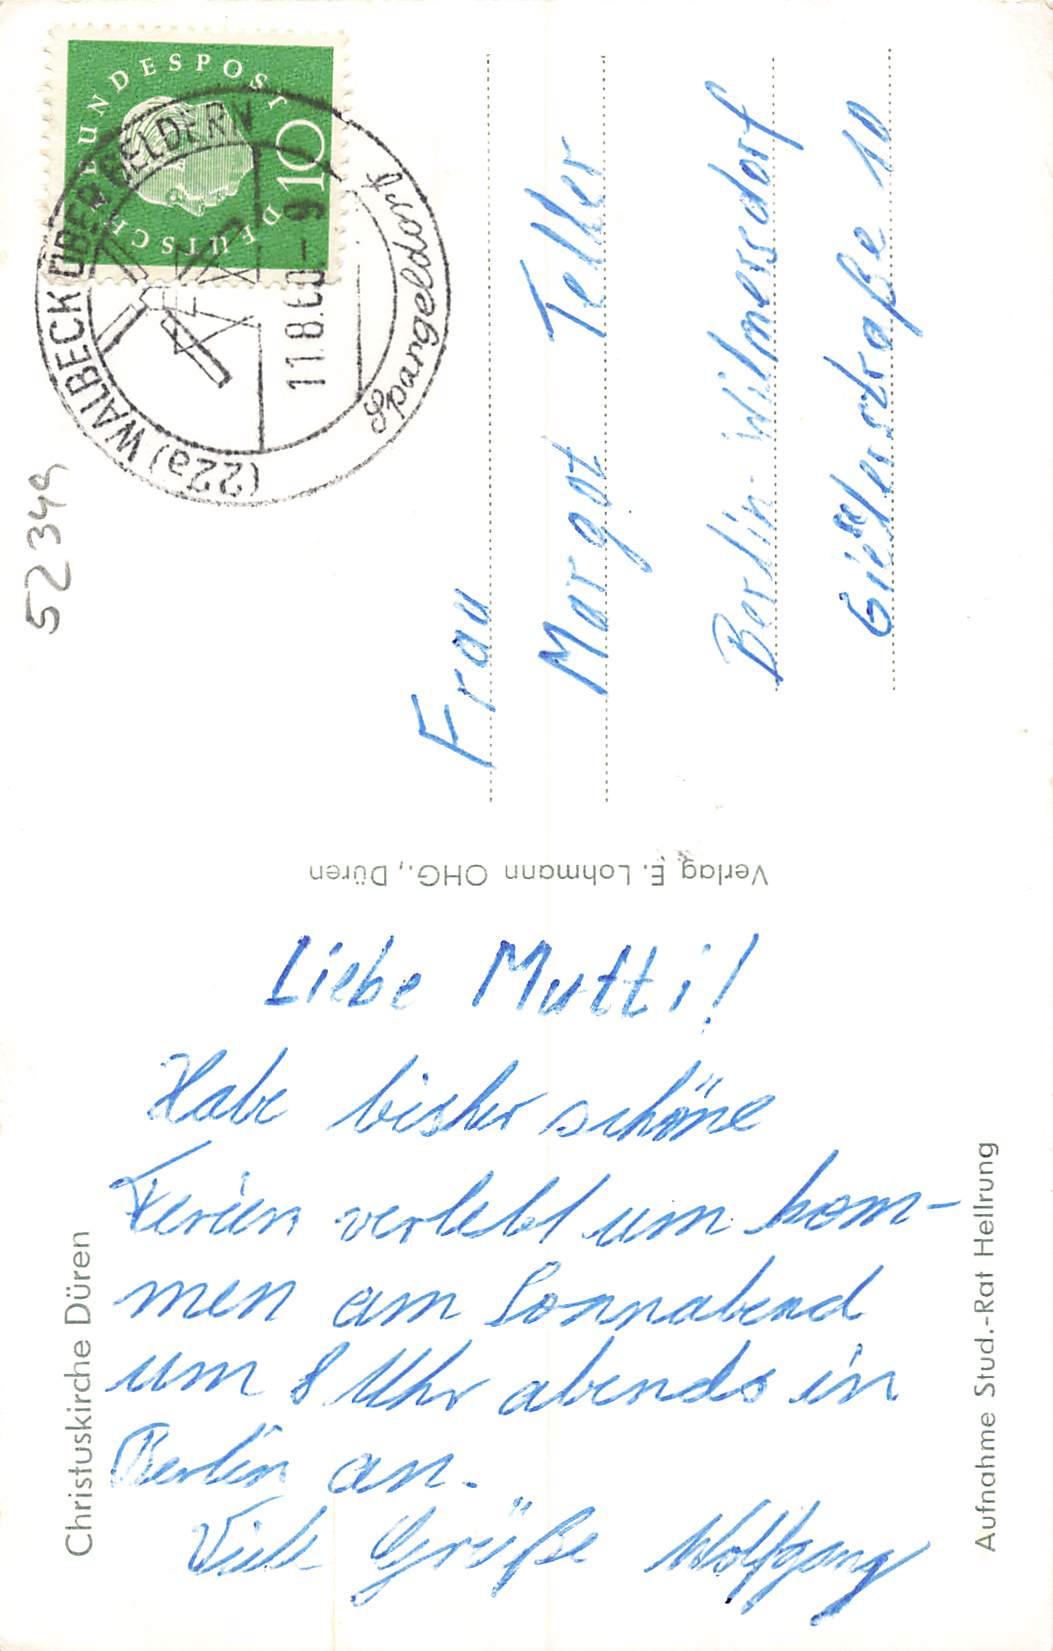 Liebe Mutti!
Habe bisher schöne
Ferien verlebt um kom-
men am Sonnabend
um 8 Uhr abends in
Berlin an.
Viele Grüße Wolfgang
Christuskirche Düren
Aufnahme Stud.-Rat Hellrung
Verlag E. Lohmann OHG., Düren
Frau
Margot Teller
Berlin-Wilmersdorf
Gieselerstraße 10
DEUTSCHE BUNDESPOST
10
(22a) WALBECK ÜBER GELDERN
11.8.60-9
Spargeldorf
5234a